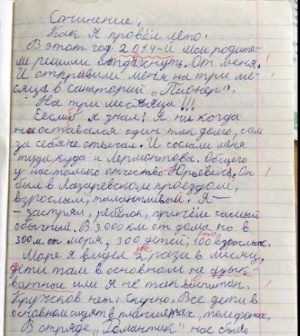 Сочинение.
Как я провёл лето.
В этот год 2014-й мои родите-
ли решили отдохнуть. От меня.
И отправили меня на три ме-
сяца в санаторий "Пионер".
На три месяца!!!
Если б я знал! Я никогда
не оставался один так долго, сам
за себя не отвечал. И сослали меня
туда, куда и Лермонтова. Общего
у нас только отчество Юрьевич. Он
был в Лазаревском проездом,
взрослым, талантливым. Я —
застрял, ребёнок, причём самый
обычный. В 3000 км от дома, но в
300 м. от моря, 300 детей, 100 взрослых.
Море я видел 2 раза в месяц,
дети там в основном не
ватные или я не так воспитан.
Кружков нет. Скучно. Все дети в
основном сидят в планшетах, телефонах.
В отряде "Романтик" нас было